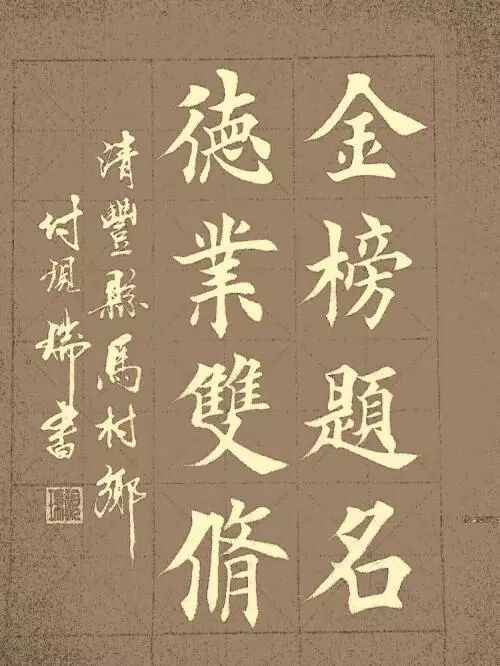 金榜題名
德業雙脩
清豐縣馬村鄉
付現瑞書